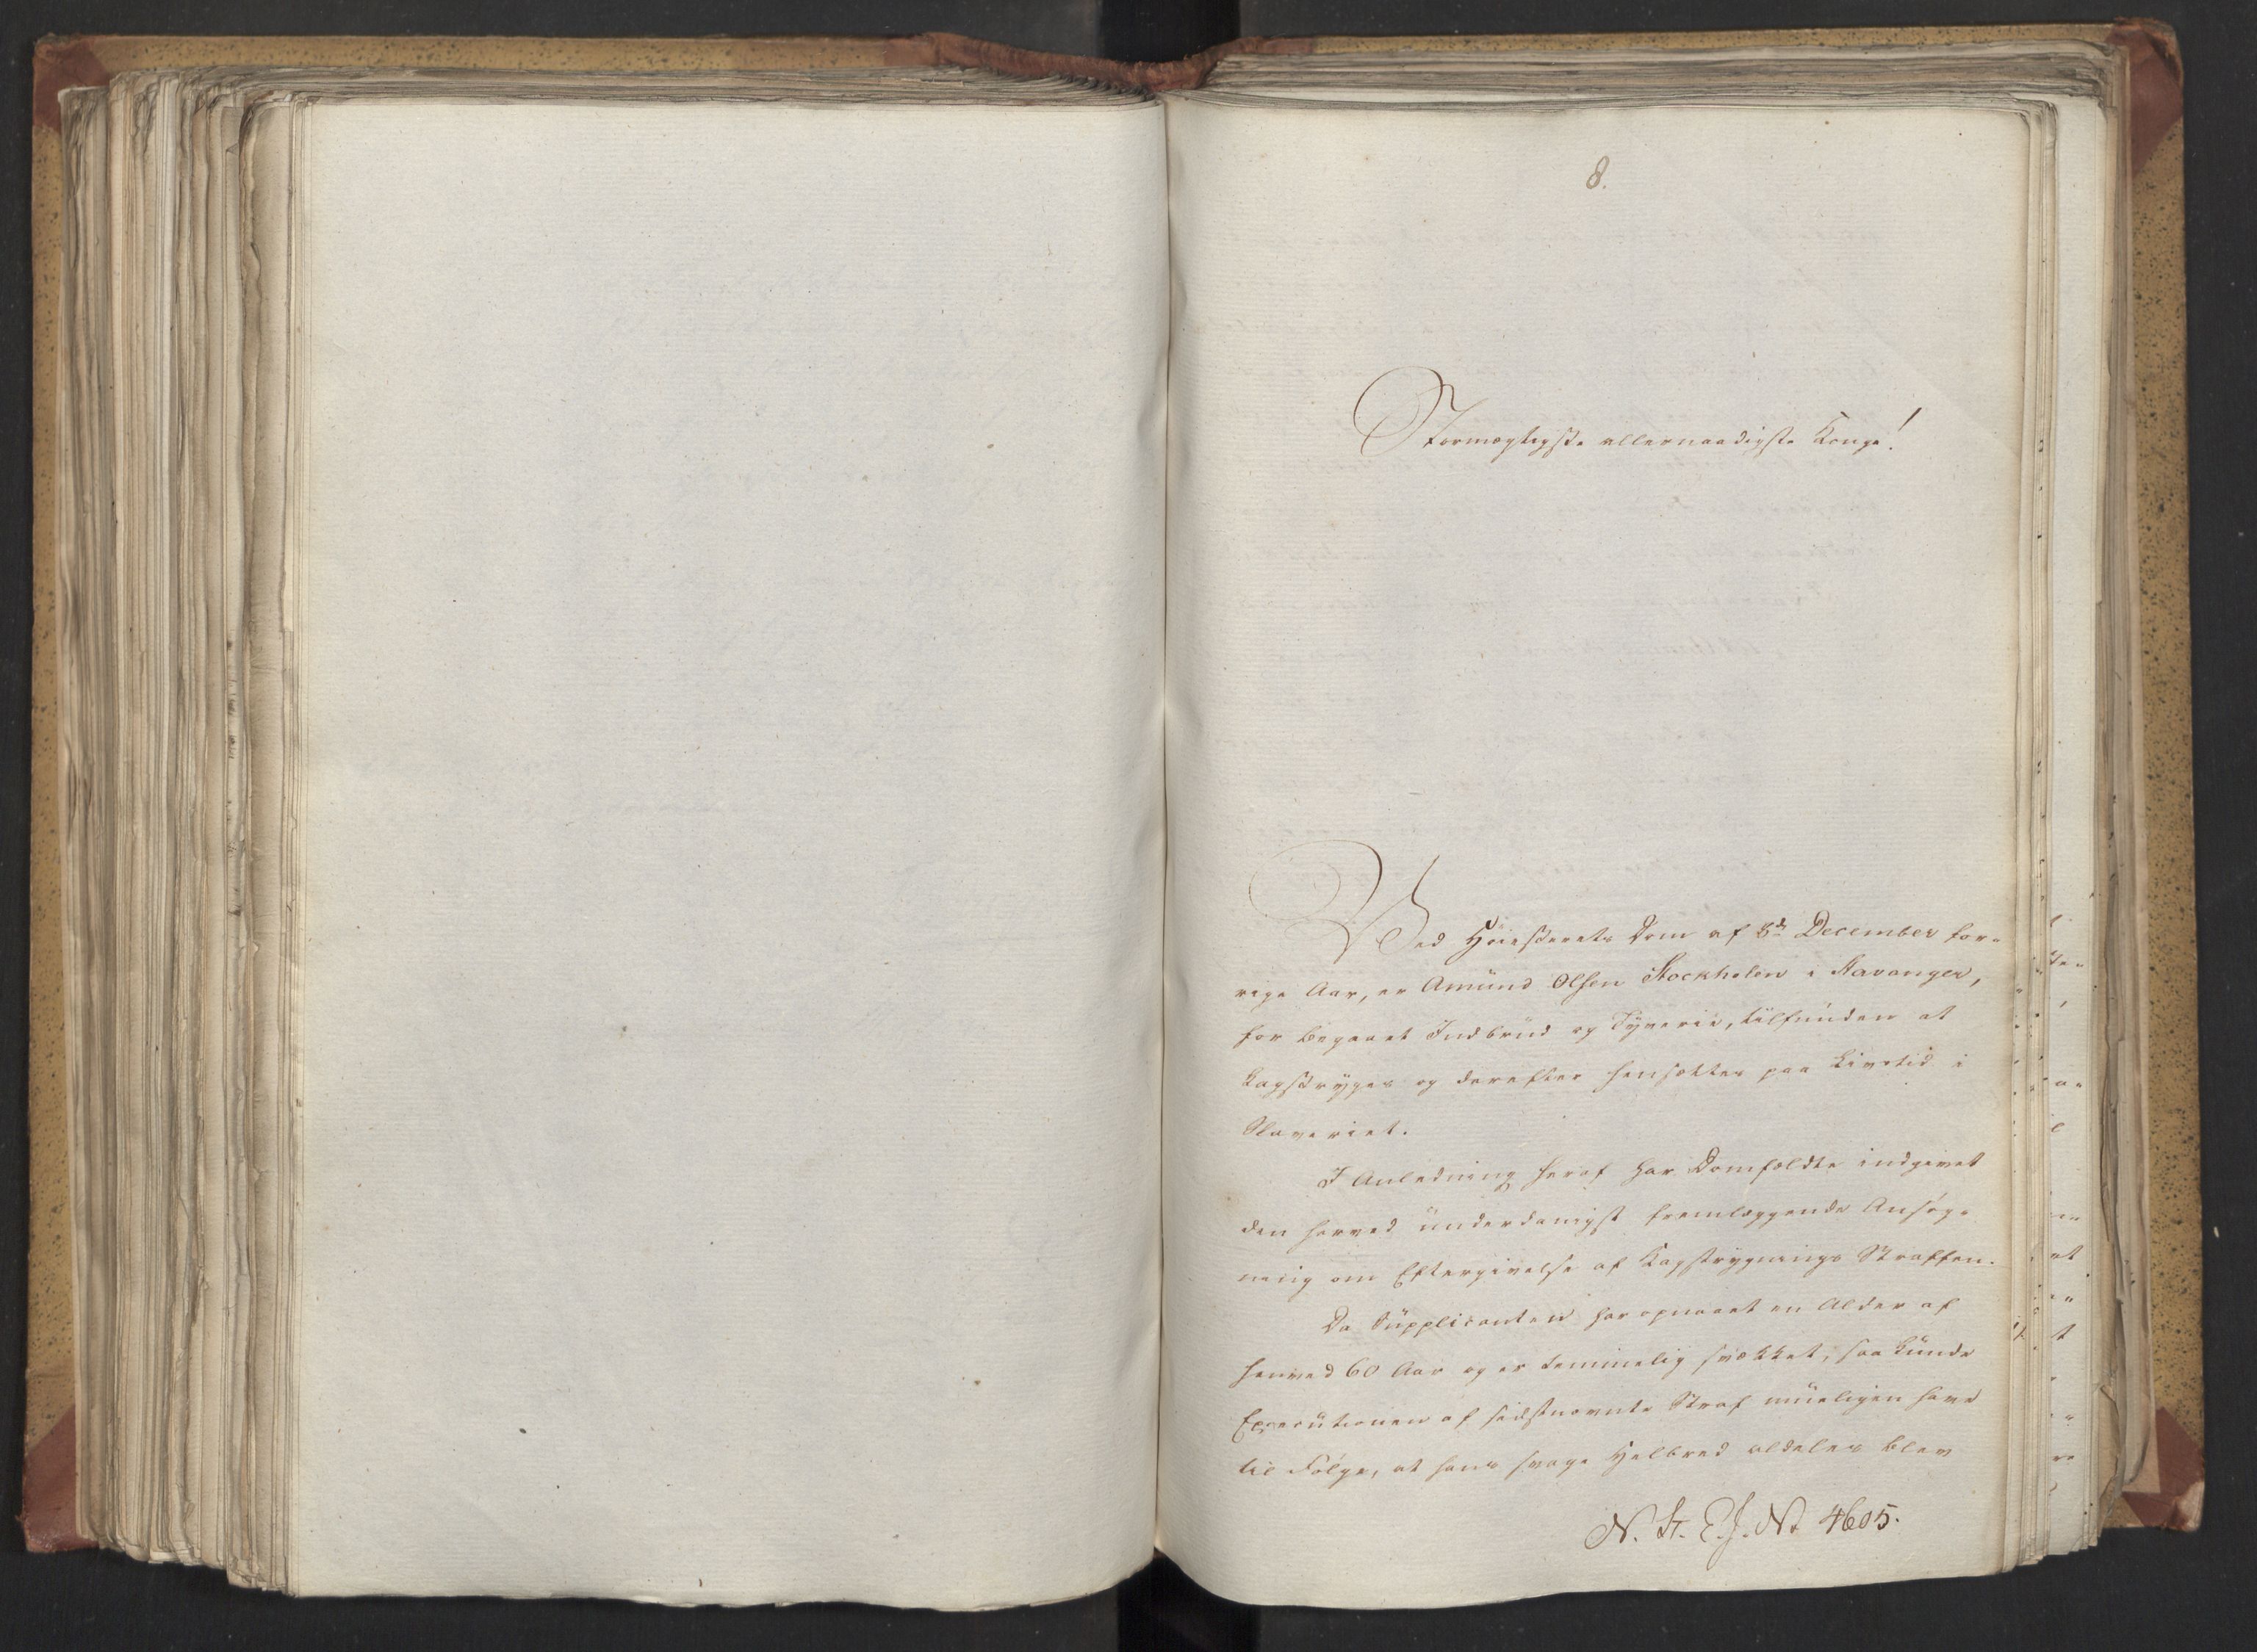 8.
Stormægtigste allernaadigste Konge!
Ved Høiesterets Dom af 8de December for-
rige Aar, er Amund Olsen Stockholm i Stavanger,
for begaaet Indbrud og Tyverie, tilfunden at
kagstryges og derefter hensættes paa Livstid i
Slaveriet.
I Anledning heraf har Domfældte indgivet
den herved underdanigst fremlæggende Ansøg-
ning om Eftergivelse af Kagstrygnings Straffen.
Da Supplicanten har opnaaet en Alder af
henved 60 Aar og er temmelig svækket, saa kunde
Executionen af sidstnævnte Straf mueligen have
til Følge, at hans svage Helbred aldeles blev
N. St. E. J. No 4605.